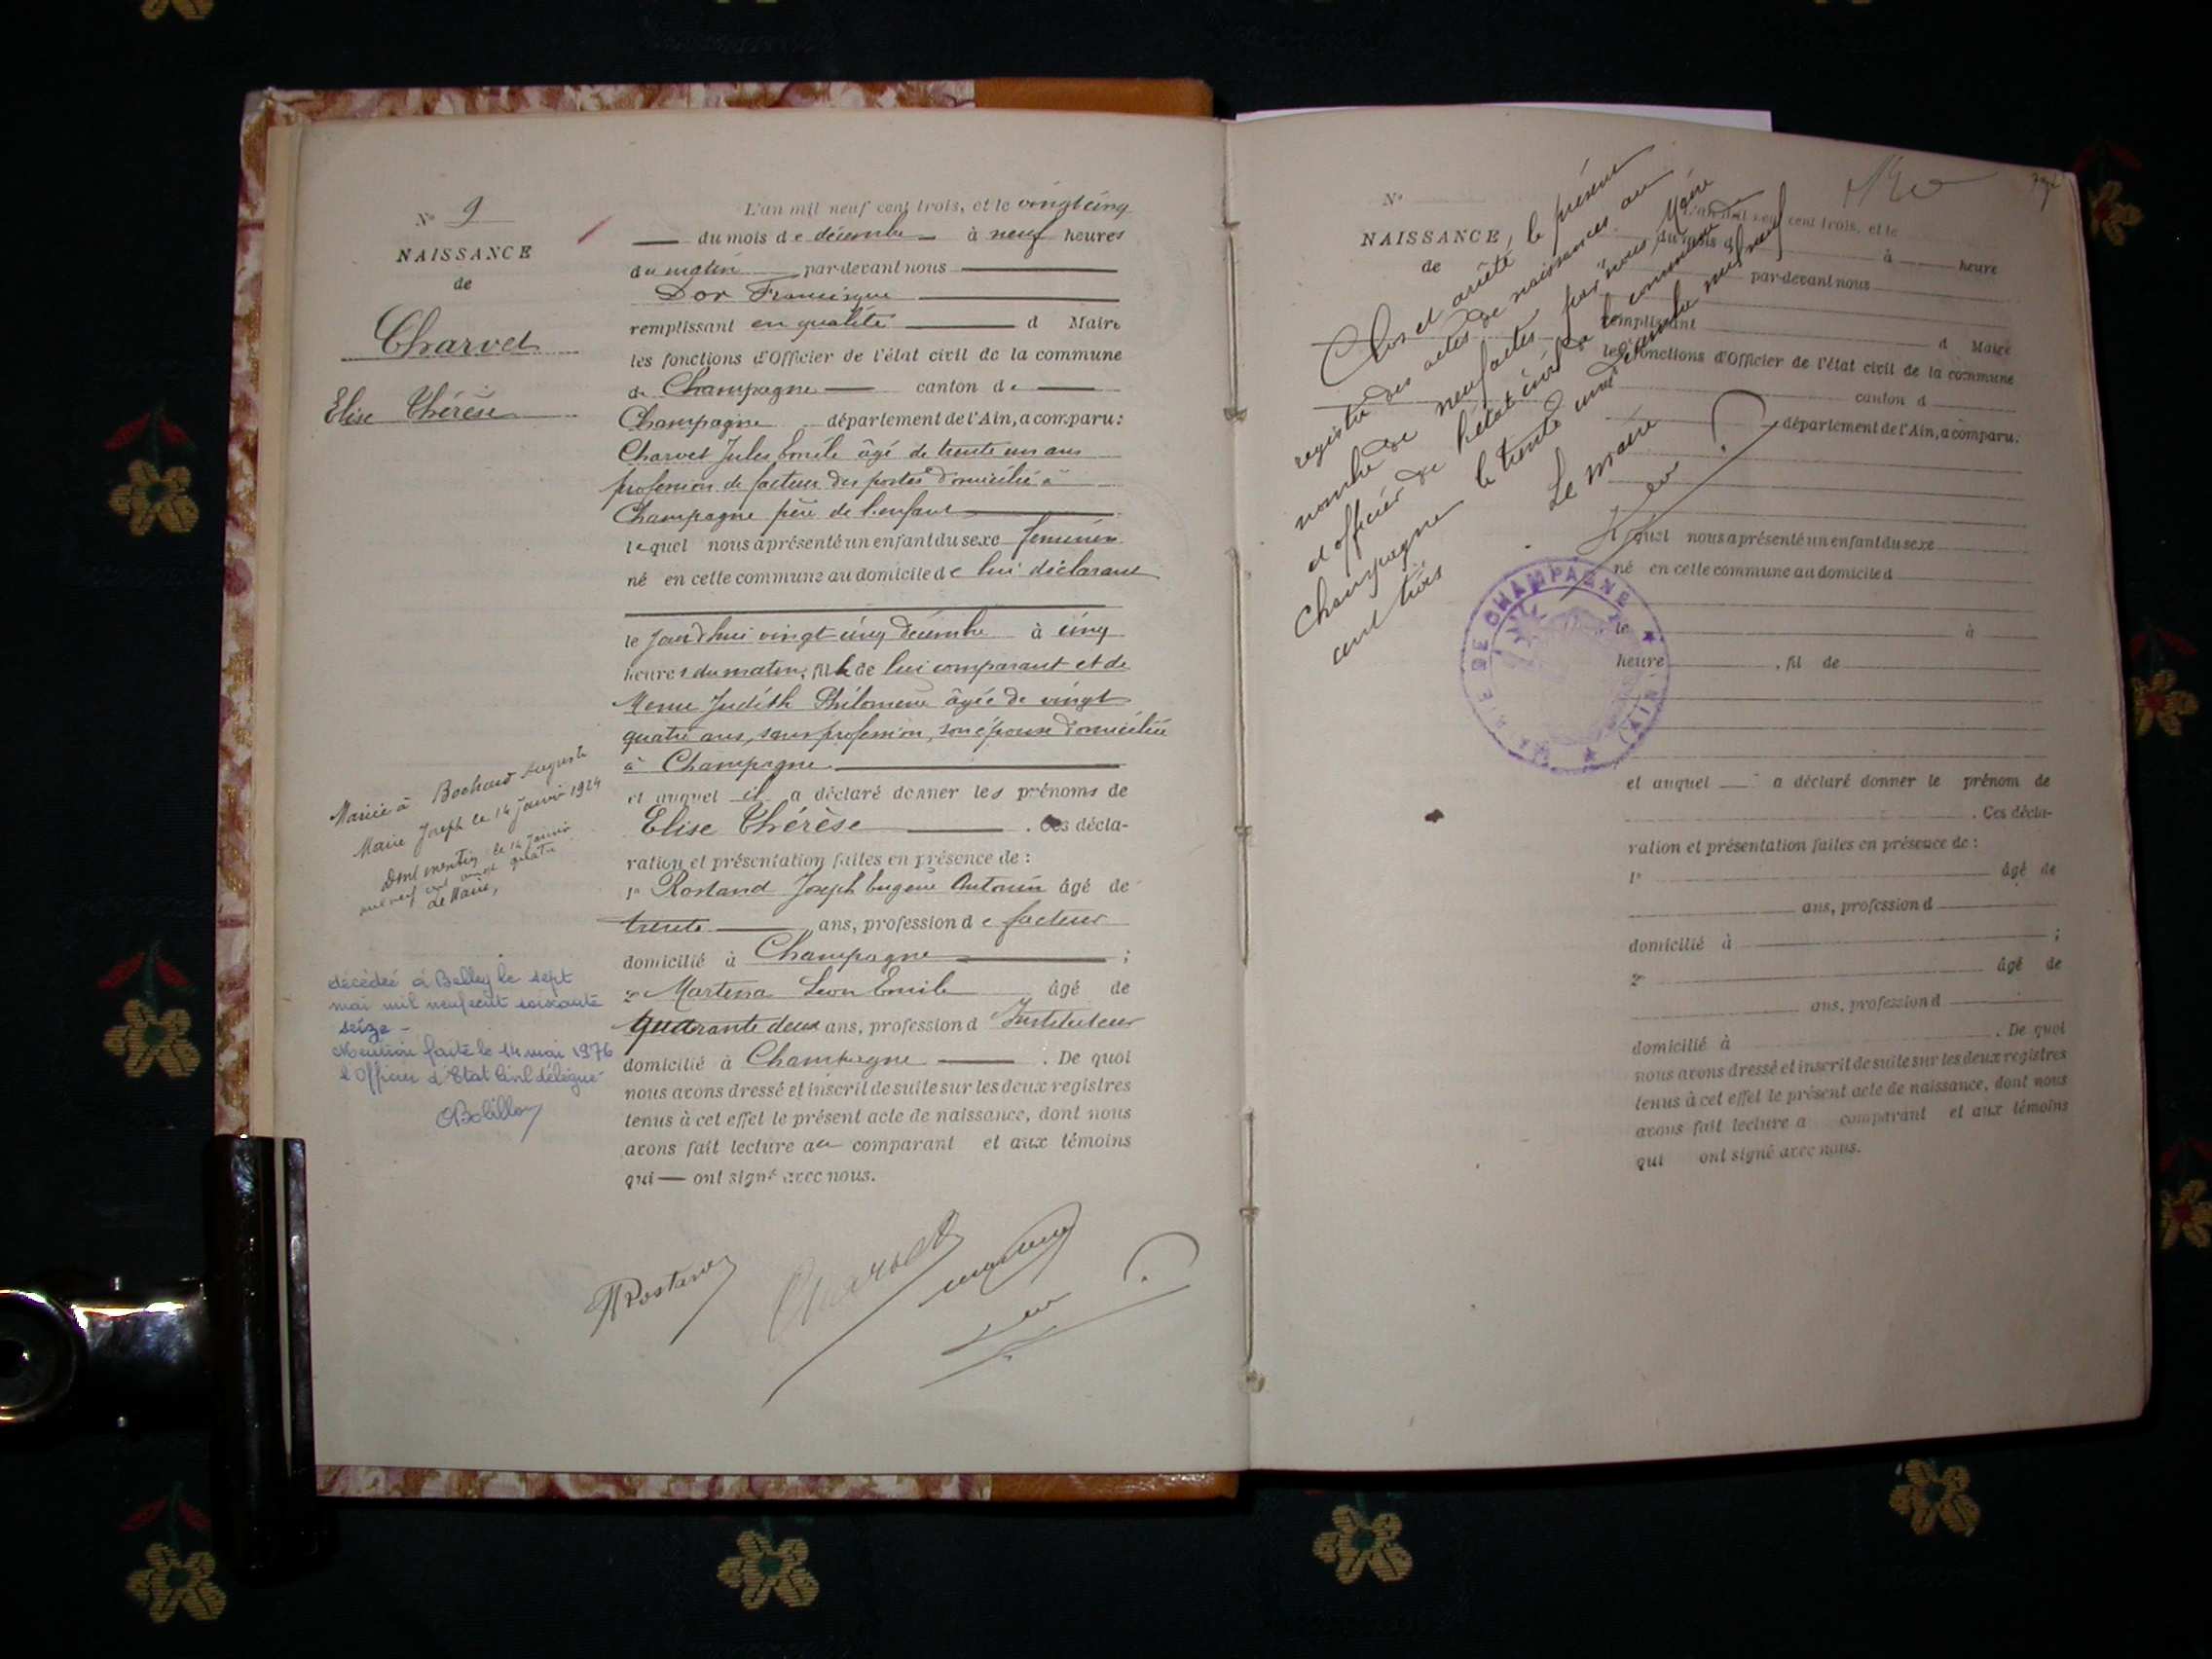 N° 9
NAISSANCE
de
Charvet
Elise Thérèse
Mariée à Bochard Auguste
Marie Joseph le 14 janvier 1924
Dont mention le 14 janvier
mil neuf cent vingt quatre
Le Maire,
décédée à Belley le sept
mai mil neuf cent soixante
seize -
Mention faite le 14 mai 1976
l'Officier d'Etat Civil délégué
L'an mil neuf cent trois, et le vingt cinq
du mois de décembre à neuf heures
du matin par-devant nous
Dor Francisque
remplissant en qualité d Maire
les fonctions d'Officier de l'état civil de la commune
de Champagne canton de
Champagne département de l'Ain, a comparu:
Charvet Jules Emile âgé de trente un ans
profession de facteur des postes domicilié à
Champagne père de l'enfant
lequel nous a présenté un enfant du sexe féminin
né en cette commune au domicile de lui déclarant
le jourd'hui vingt cinq décembre à cinq
heures du matin, fille de lui comparant et de
Judith Philomène âgée de vingt
quatre ans, sans profession, son épouse domiciliée
à Champagne
et auquel il a déclaré donner les prénoms de
Elise Thérèse . Ces décla-
ration et présentation faites en présence de :
1° Rostand Joseph Eugène Antonin âgé de
trente ans, profession de facteur
domicilié à Champagne ;
2° Léon Emile âgé de
quarante deux ans, profession d Instituteur
domicilié à Champagne . De quoi
nous avons dressé et inscrit de suite sur les deux registres
tenus à cet effet le présent acte de naissance, dont nous
avons fait lecture au comparant et aux témoins
qui — ont signé avec nous.
Rostand Charvet
Dor
N°
NAISSANCE
de
Clos et arrêté, le présent
registre des actes de naissances au
nombre de neuf actes par nous, Maire
et officier de l'état civil de la commune de
Champagne le trente un décembre mil neuf
cent trois
Le maire
Dor
MAIRIE DE CHAMPAGNE (AIN)
L'an mil neuf cent trois, et le
du mois d à heure
par-devant nous
remplissant d Maire
les fonctions d'Officier de l'état civil de la commune
canton d
département de l'Ain, a comparu:
lequel nous a présenté un enfant du sexe
né en cette commune au domicile d
le à
heure , fil de
et auquel a déclaré donner le prénom de
. Ces décla-
ration et présentation faites en présence de :
1° âgé de
ans, profession d
domicilié à ;
2° âgé de
ans, profession d
domicilié à . De quoi
nous avons dressé et inscrit de suite sur les deux registres
tenus à cet effet le présent acte de naissance, dont nous
avons fait lecture a comparant et aux témoins
qui ont signé avec nous.